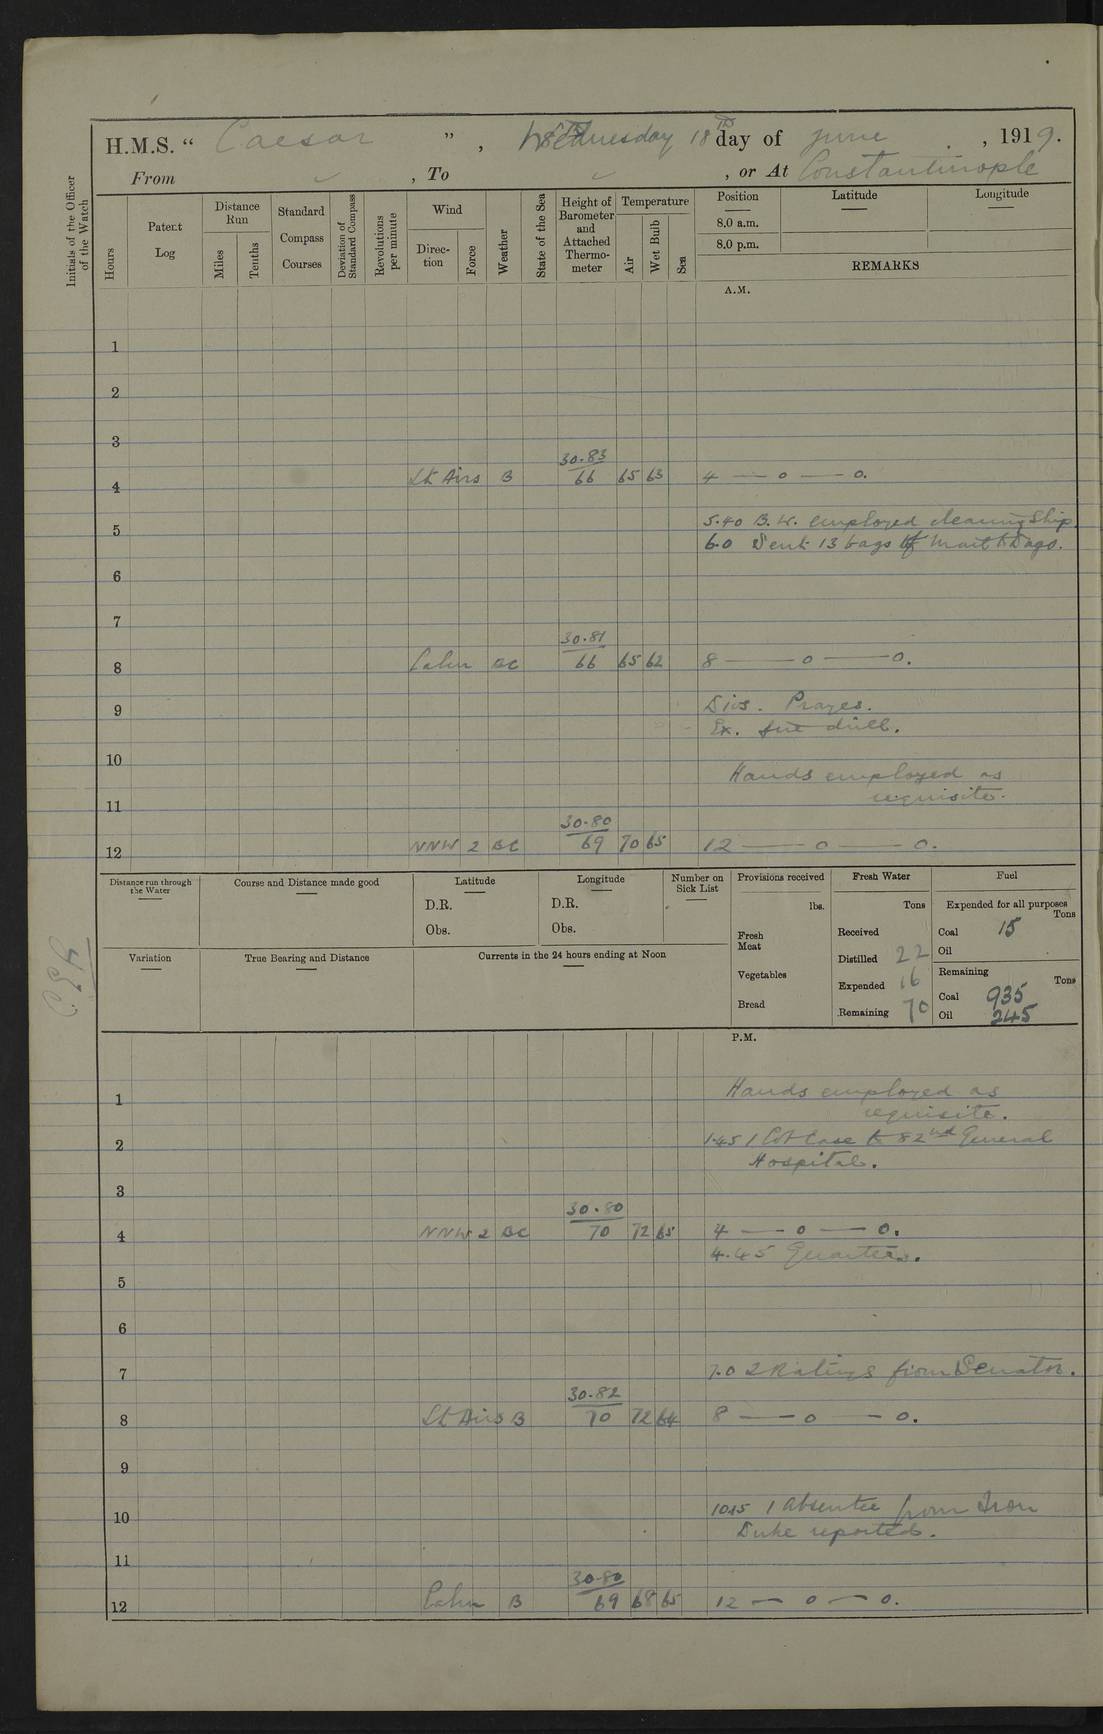 H.M.S. “ Caesar ” , Wednesday 18th day of June , 1919.
From , To , or At Constantinople
Initials of the Officer of the Watch
Hours
Patent Log
Distance Run
Miles
Tenths
Standard Compass Courses
Deviation of Standard Compass
Revolutions per minute
Wind
Direction
Force
Weather
State of the Sea
Height of Barometer and Attached Thermometer
Temperature
Air
Wet Bulb
Sea
Position
8.0 a.m.
8.0 p.m.
Latitude
Longitude
REMARKS
A.M.
1
2
3
30.83
4 Lt Airs B 66 65 63 4 — 0 — 0.
5 5.40 B.W. employed cleaning Ship.
6.0 Sent 13 bags of to
6
7
30.81
8 Calm BC 66 65 62 8 — 0 — 0.
9 Divs. Prayes.
Ex. fire drill.
10
Hands employed as
11 requisite.
30.80
12 NNW 2 BC 69 70 65 12 — 0 — 0.
Distance run through the Water
Course and Distance made good
Latitude
D.R.
Obs.
Longitude
D.R.
Obs.
Number on Sick List
Provisions received
lbs.
Fresh Meat
Vegetables
Bread
Fresh Water
Tons
Received
Distilled 22
Expended 16
Remaining 70
Fuel
Expended for all purposes
Tons
Coal 15
Oil
Remaining
Tons
Coal 935
Oil 245
Variation
True Bearing and Distance
Currents in the 24 hours ending at Noon
P.M.
1 Hands employed as
requisite.
2 1.45 1 Cot Case to 82nd General
Hospital.
3
30.80
4 NNW 2 BC 70 72 65 4 — 0 — 0.
4.45 Quarters.
5
6
7 7.0 2 Ratings from Senator.
30.82
8 Lt Airs B 70 72 64 8 — 0 — 0.
9
10 10.15 1 Absentee from Iron
Duke reported.
11
30.80
12 Calm B 69 68 65 12 — 0 — 0.